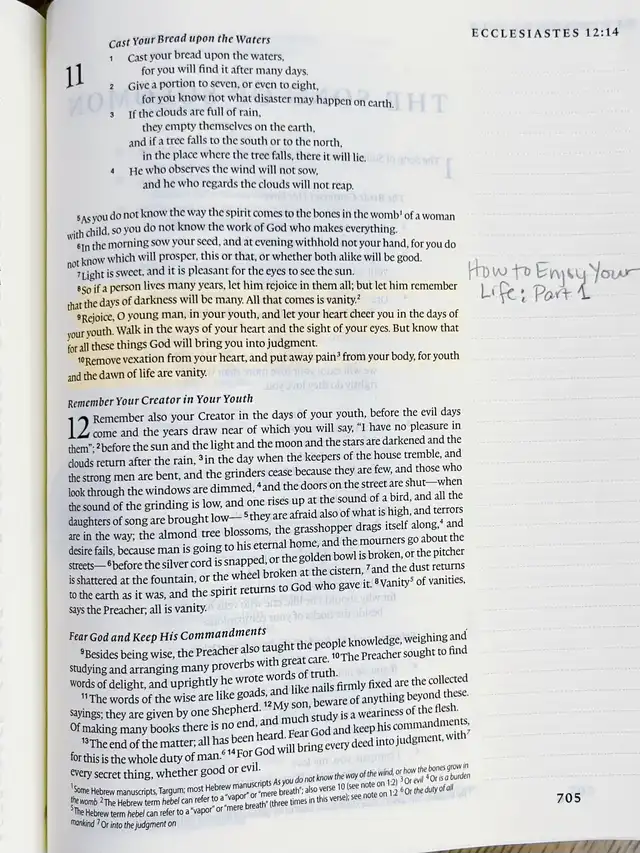 ECCLESIASTES 12:14
Cast Your Bread upon the Waters
11 1 Cast your bread upon the waters,
for you will find it after many days.
2 Give a portion to seven, or even to eight,
for you know not what disaster may happen on earth.
3 If the clouds are full of rain,
they empty themselves on the earth,
and if a tree falls to the south or to the north,
in the place where the tree falls, there it will lie.
4 He who observes the wind will not sow,
and he who regards the clouds will not reap.
5As you do not know the way the spirit comes to the bones in the womb1 of a woman
with child, so you do not know the work of God who makes everything.
6In the morning sow your seed, and at evening withhold not your hand, for you do
not know which will prosper, this or that, or whether both alike will be good.
7Light is sweet, and it is pleasant for the eyes to see the sun.
8So if a person lives many years, let him rejoice in them all; but let him remember
that the days of darkness will be many. All that comes is vanity.2
9Rejoice, O young man, in your youth, and let your heart cheer you in the days of
your youth. Walk in the ways of your heart and the sight of your eyes. But know that
for all these things God will bring you into judgment.
10Remove vexation from your heart, and put away pain3 from your body, for youth
and the dawn of life are vanity.
How to Enjoy Your
Life: Part 1
Remember Your Creator in Your Youth
12 Remember also your Creator in the days of your youth, before the evil days
come and the years draw near of which you will say, "I have no pleasure in
them"; 2before the sun and the light and the moon and the stars are darkened and the
clouds return after the rain, 3in the day when the keepers of the house tremble, and
the strong men are bent, and the grinders cease because they are few, and those who
look through the windows are dimmed, 4and the doors on the street are shut—when
the sound of the grinding is low, and one rises up at the sound of a bird, and all the
daughters of song are brought low— 5they are afraid also of what is high, and terrors
are in the way; the almond tree blossoms, the grasshopper drags itself along,4 and
desire fails, because man is going to his eternal home, and the mourners go about the
streets— 6before the silver cord is snapped, or the golden bowl is broken, or the pitcher
is shattered at the fountain, or the wheel broken at the cistern, 7and the dust returns
to the earth as it was, and the spirit returns to God who gave it. 8Vanity5 of vanities,
says the Preacher; all is vanity.
Fear God and Keep His Commandments
9Besides being wise, the Preacher also taught the people knowledge, weighing and
studying and arranging many proverbs with great care. 10The Preacher sought to find
words of delight, and uprightly he wrote words of truth.
11The words of the wise are like goads, and like nails firmly fixed are the collected
sayings; they are given by one Shepherd. 12My son, beware of anything beyond these.
Of making many books there is no end, and much study is a weariness of the flesh.
13The end of the matter; all has been heard. Fear God and keep his commandments,
for this is the whole duty of man.6 14For God will bring every deed into judgment, with7
every secret thing, whether good or evil.
1Some Hebrew manuscripts, Targum; most Hebrew manuscripts As you do not know the way of the wind, or how the bones grow in
the womb 2The Hebrew term hebel can refer to a "vapor" or "mere breath"; also verse 10 (see note on 1:2) 3Or evil 4Or is a burden
5The Hebrew term hebel can refer to a "vapor" or "mere breath" (three times in this verse); see note on 1:2 6Or the duty of all
mankind 7Or into the judgment on
705